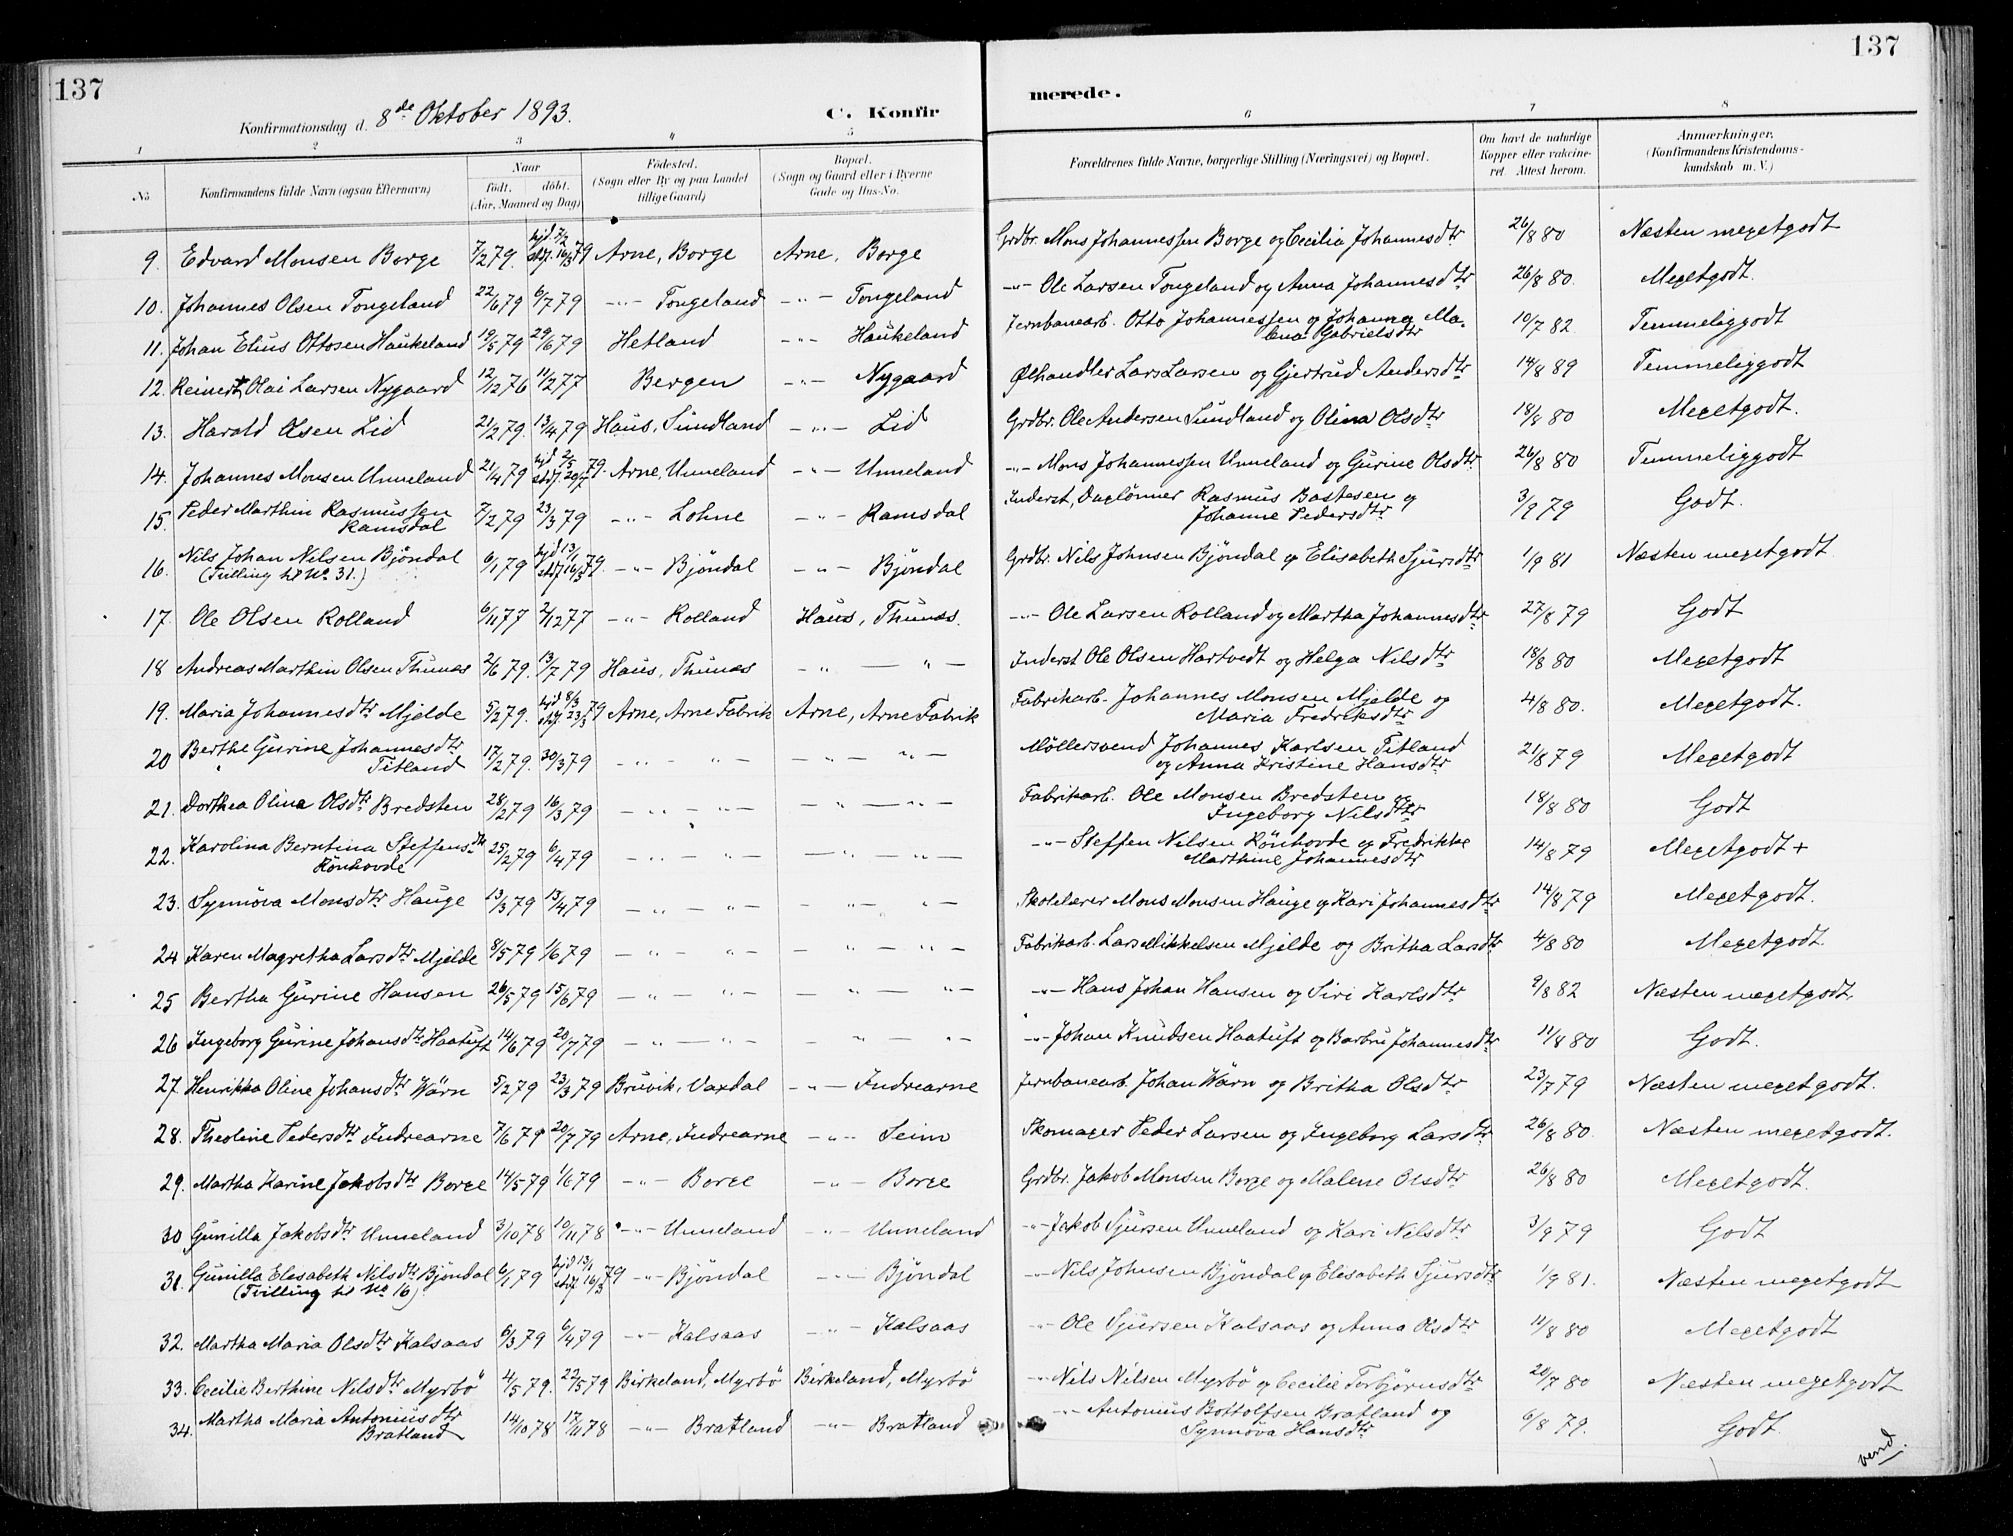 137
137
Konfirmationsdag d. 8de Oktober 1893.
C. Konfir
merede.
1 2 3 4 5 6 7 8
No
Konfirmandens fulde Navn (ogsaa Efternavn)
Naar
født. døbt.
(Aar, Maaned og Dag)
Fødested.
(Sogn eller By og paa Landet
tillige Gaard)
Bopæl.
(Sogn og Gaard eller i Byerne
Gade og Hus-No.
Forældrenes fulde Navne, borgerlige Stilling (Næringsvei) og Bopæl.
Om havt de naturlige
Kopper eller vakcine-
ret. Attest herom.
Anmærkninger.
(Konfirmandens Kristendoms-
kundskab m. V.)
9. Edvard Monsen Borge 7/2 79. hjd. 7/2 stdf. 16/3 79 Arne, Borge Arne, Borge Grdbr. Mons Johannessen Borge og Cecilia Johannesdtr 26/8 80 Næsten megetgodt
10. Johannes Olsen Tongeland 22/6 79 6/7 79 -"- Tongeland -"- Tongeland -"- Ole Larsen Tongeland og Anna Johannesdtr 26/8 80. Megetgodt.
11. Johan Elius Ottosen Haukeland 19/5 79 29/6 79 Hetland -"- Haukeland Jernbanearb. Otto Johannessen og Johanna Ma-
lena Gabrielsdtr 10/7 82. Temmeliggodt
12. Reinert Olai Larsen Nygaard 12/12 76 11/2 77 Bergen -"- Nygaard Ølhandler Lars Larsen og Gjertrud Andersdtr 14/8 89 Temmeliggodt
13. Harald Olsen Lid 21/2 79. 13/4 79 Haus, Sundland -"- Lid Grdbr. Ole Andersen Sundland og Olina Olsdtr 18/8 80 Megetgodt.
14. Johannes Monsen Unneland 21/4 79 hjd 2/5 stdf. 20/7 79. Arne, Unneland -"- Unneland -"- Mons Johannessen Unneland og Gurine Olsdtr 26/8 80 Temmeliggodt
15. Peder Marthin Rasmussen
Ramsdal 7/2 79 23/3 79 -"- Lohne -"- Ramsdal Inderst, Daglønner Rasmus Bastesen og
Johanne Pedersdtr 3/9 79 Godt.
16. Nils Johan Nilsen Bjöndal
(Tvilling til No 31.) 6/1 79 hjd 13/1 stdf 16/3 79. -"- Bjöndal -"- Bjöndal Grdbr. Nils Johnsen Bjöndal og Elisabeth Sjursdtr 1/9 81 Næsten megetgodt
17. Ole Olsen Rolland 6/11 77 2/12 77 -"- Rolland Haus, Thunæs. -"- Ole Larsen Rolland og Martha Johannesdtr 27/8 79 Godt
18 Andreas Marthin Olsen Thunæs 2/6 79. 13/7 79 Haus, Thunæs - " - " - Inderst Ole Olsen Hartvedt og Helga Nilsdtr 18/8 80 Megetgodt
19. Maria Johannesdtr Mjelde 5/2 79. hjd 8/3 stdf 23/3 79 Arne, Arne Fabrik Arne, Arne Fabrik Fabrikarb. Johannes Monsen Mjelde og
Maria Fredriksdtr 4/8 80. Megetgodt.
20 Berthe Gurine Johannesdtr
Titland 17/2 79. 30/3 79 - " - " - - " - " - Møllersvend Johannes Karlsen Titland
og Anna Kristine Hansdtr 21/8 79 Megetgodt
21. Dorthea Olina Olsdtr Bredsten 28/2 79 16/3 79 - " - " - - " - " - Fabrikarb. Ole Monsen Bredsten og
Ingeborg Nilsdtr 18/8 80 Godt
22. Karolina Berntina Steffensdtr
Rönhovde 25/2 79 6/4 79 - " - " - - " - " - -"- Steffen Nilsen Rönhovde og Fredrikke
Marthine Johannesdtr 14/8 79 Megetgodt +
23. Synnöva Monsdtr Hauge 13/3 79 13/4 79 - " - " - - " - " - Skolelærer Mons Monsen Hauge og Kari Johannesdtr 14/8 79 Megetgodt.
24 Karen Magretha Larsdtr Mjelde 8/5 79 1/6 79 - " - " - - " - " - Fabrikarb. Lars Mikkelsen Mjelde og Britha Larsdtr 4/8 80 Megetgodt
25 Bertha Gurine Hansen 26/5 79 15/6 79 - " - " - - " - " - -"- Hans Johan Hansen og Siri Karlsdtr 9/8 82 Næsten megetgodt.
26 Ingeborg Gurine Johansdtr Haatuft 14/6 79 20/7 79 - " - " - - " - " - -"- Johan Knudsen Haatuft og Barbru Johannesdtr 11/8 80 Godt.
27. Henrikka Oline Johansdtr Wärn 5/2 79 23/3 79 Bruvik, Vaxdal -"- Indrearne Jernbanearb. Johan Wärn og Britha Olsdtr 23/7 79 Næsten megetgodt.
28. Theoline Pedersdtr Indrearne 7/6 79 20/7 79 Arne, Indrearne -"- Seim Skomager Peder Larsen og Ingeborg Larsdtr 26/8 80. Næsten megetgodt.
29. Martha Karine Jakobsdtr Borge 14/5 79 1/6 79 -"- Borge -"- Borge Grdbr. Jakob Monsen Borge og Malene Olsdtr 26/8 80 Megetgodt.
30 Gunilla Jakobsdtr Unneland 3/10 78 10/11 78 -"- Unneland -"- Unneland -"- Jakob Sjursen Unneland og Kari Nilsdtr 3/9 79 Godt
31. Gunilla Elisabeth Nilsdtr Bjöndal
(Tvilling til No 16). 6/1 79 hjd 13/1 stdf 16/3 79 -"- Bjöndal -"- Bjöndal -"- Nils Johnsen Bjöndal og Elisabeth Sjursdtr 1/9 81. Næsten megetgodt
32. Martha Maria Olsdtr Kalsaas 6/3 79 6/4 79 -"- Kalsaas -"- Kalsaas -"- Ole Sjursen Kalsaas og Anna Olsdtr 11/8 80 Megetgodt
33. Cecilie Berthine Nilsdtr Myrbö 4/5 79. 22/5 79 Birkeland, Myrbö Birkeland, Myrbö -"- Nils Nilsen Myrbö og Cecilie Torbjörnsdtr 20/7 80 Næsten megetgodt
34. Martha Maria Antoniusdtr
Bratland 14/10 78 17/11 78 -"- Bratland -"- Bratland -"- Antonius Bottolfsen Bratland og
Synnöva Hansdtr 6/8 79. Godt.
vend.